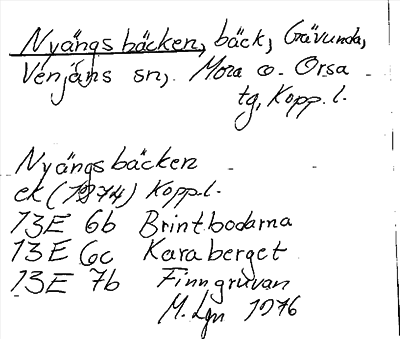 Nyängsbäcken, bäck, Gävunda,
Venjans sn, Mora o. Orsa
tg, Kopp. l.
Nyängsbäcken
ek (1974) Kopp.l.
13E 6b Brintbodarna
13E 6c Karaberget
13E 7b Finngruvan
M. Lgn 1976